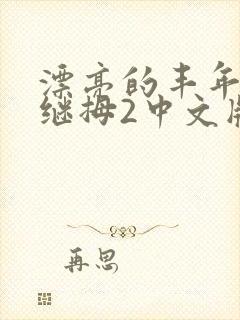 漂亮的丰年
继拇2中文版
再思